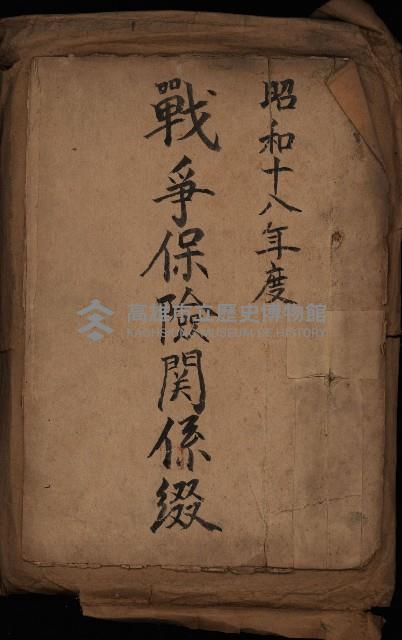 昭和十八年度
戰爭保險関係綴
高雄市立歷史博物館
KAOHSIUNG MUSEUM OF HISTORY